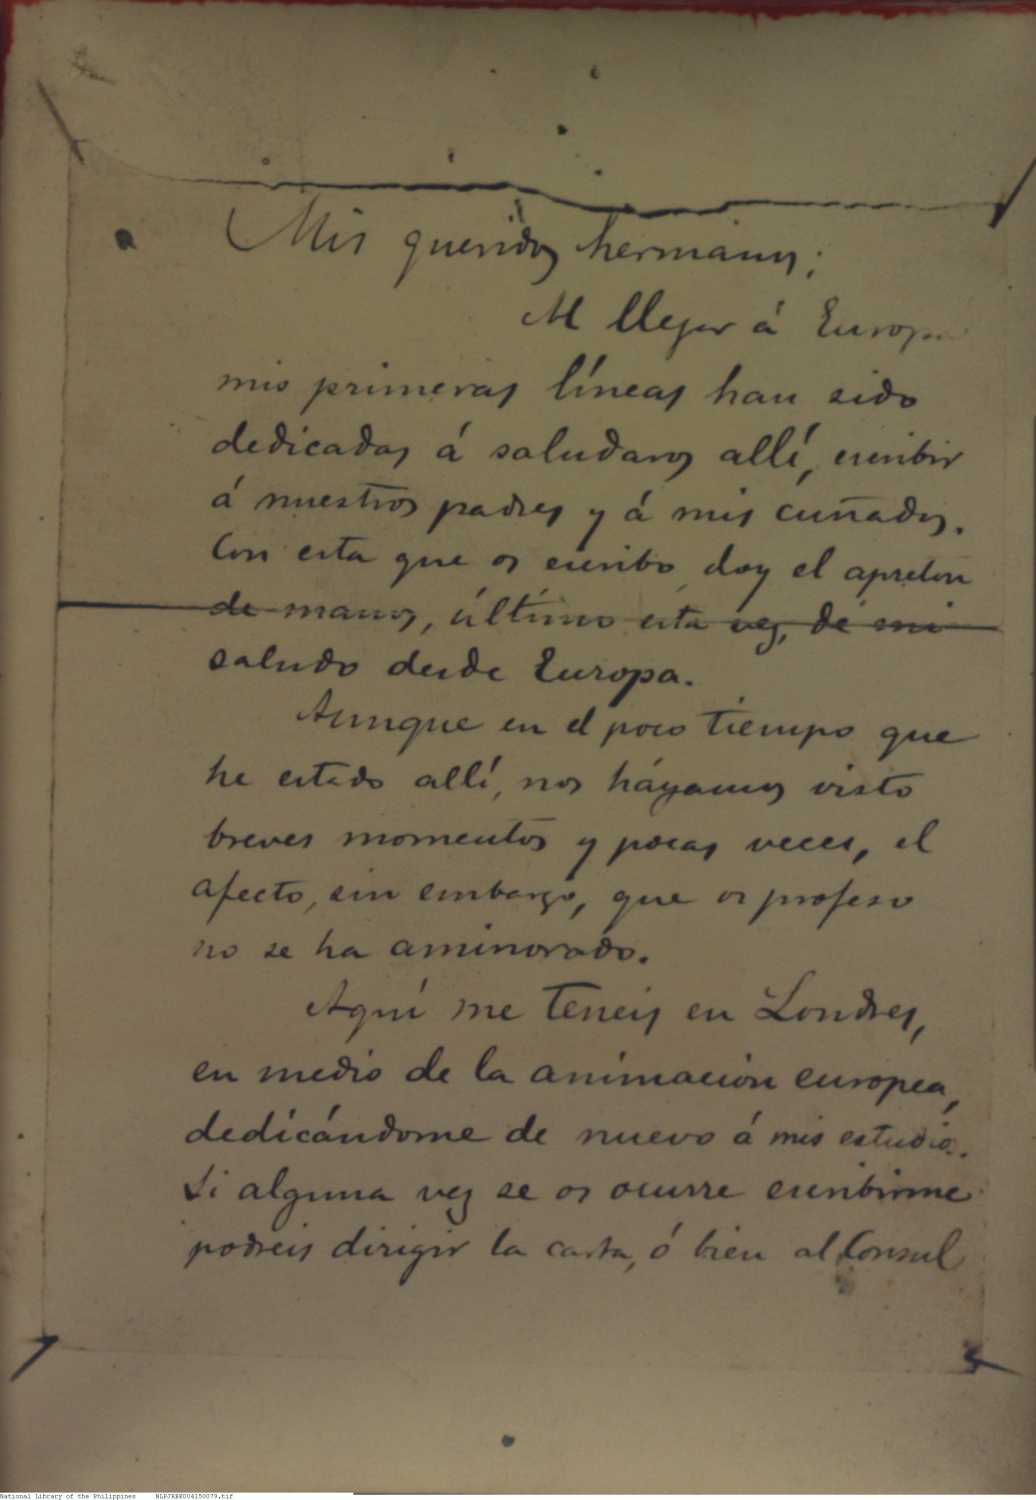 Mis queridos hermanos;
Al llegar á Europa
mis primeras líneas han sido
dedicadas á saludaros allí, escribir
á nuestros padres y á mis cuñados.
Con esta que os escribo doy el apreton
de manos, último esta vez, de mi
saludo desde Europa.
Aunque en el poco tiempo que
he estado allí, nos háyamos visto
breves momentos y pocas veces, el
afecto, sin embargo, que os profeso
no se ha aminorado.
Aquí me teneis en Londres,
en medio de la animacion europea,
dedicándome de nuevo á mis estudios.
Si alguna vez se os ocurre escribirme
podreis dirigir la carta, ó bien al Consul
National Library of the Philippines NLPJRBW004150079.tif